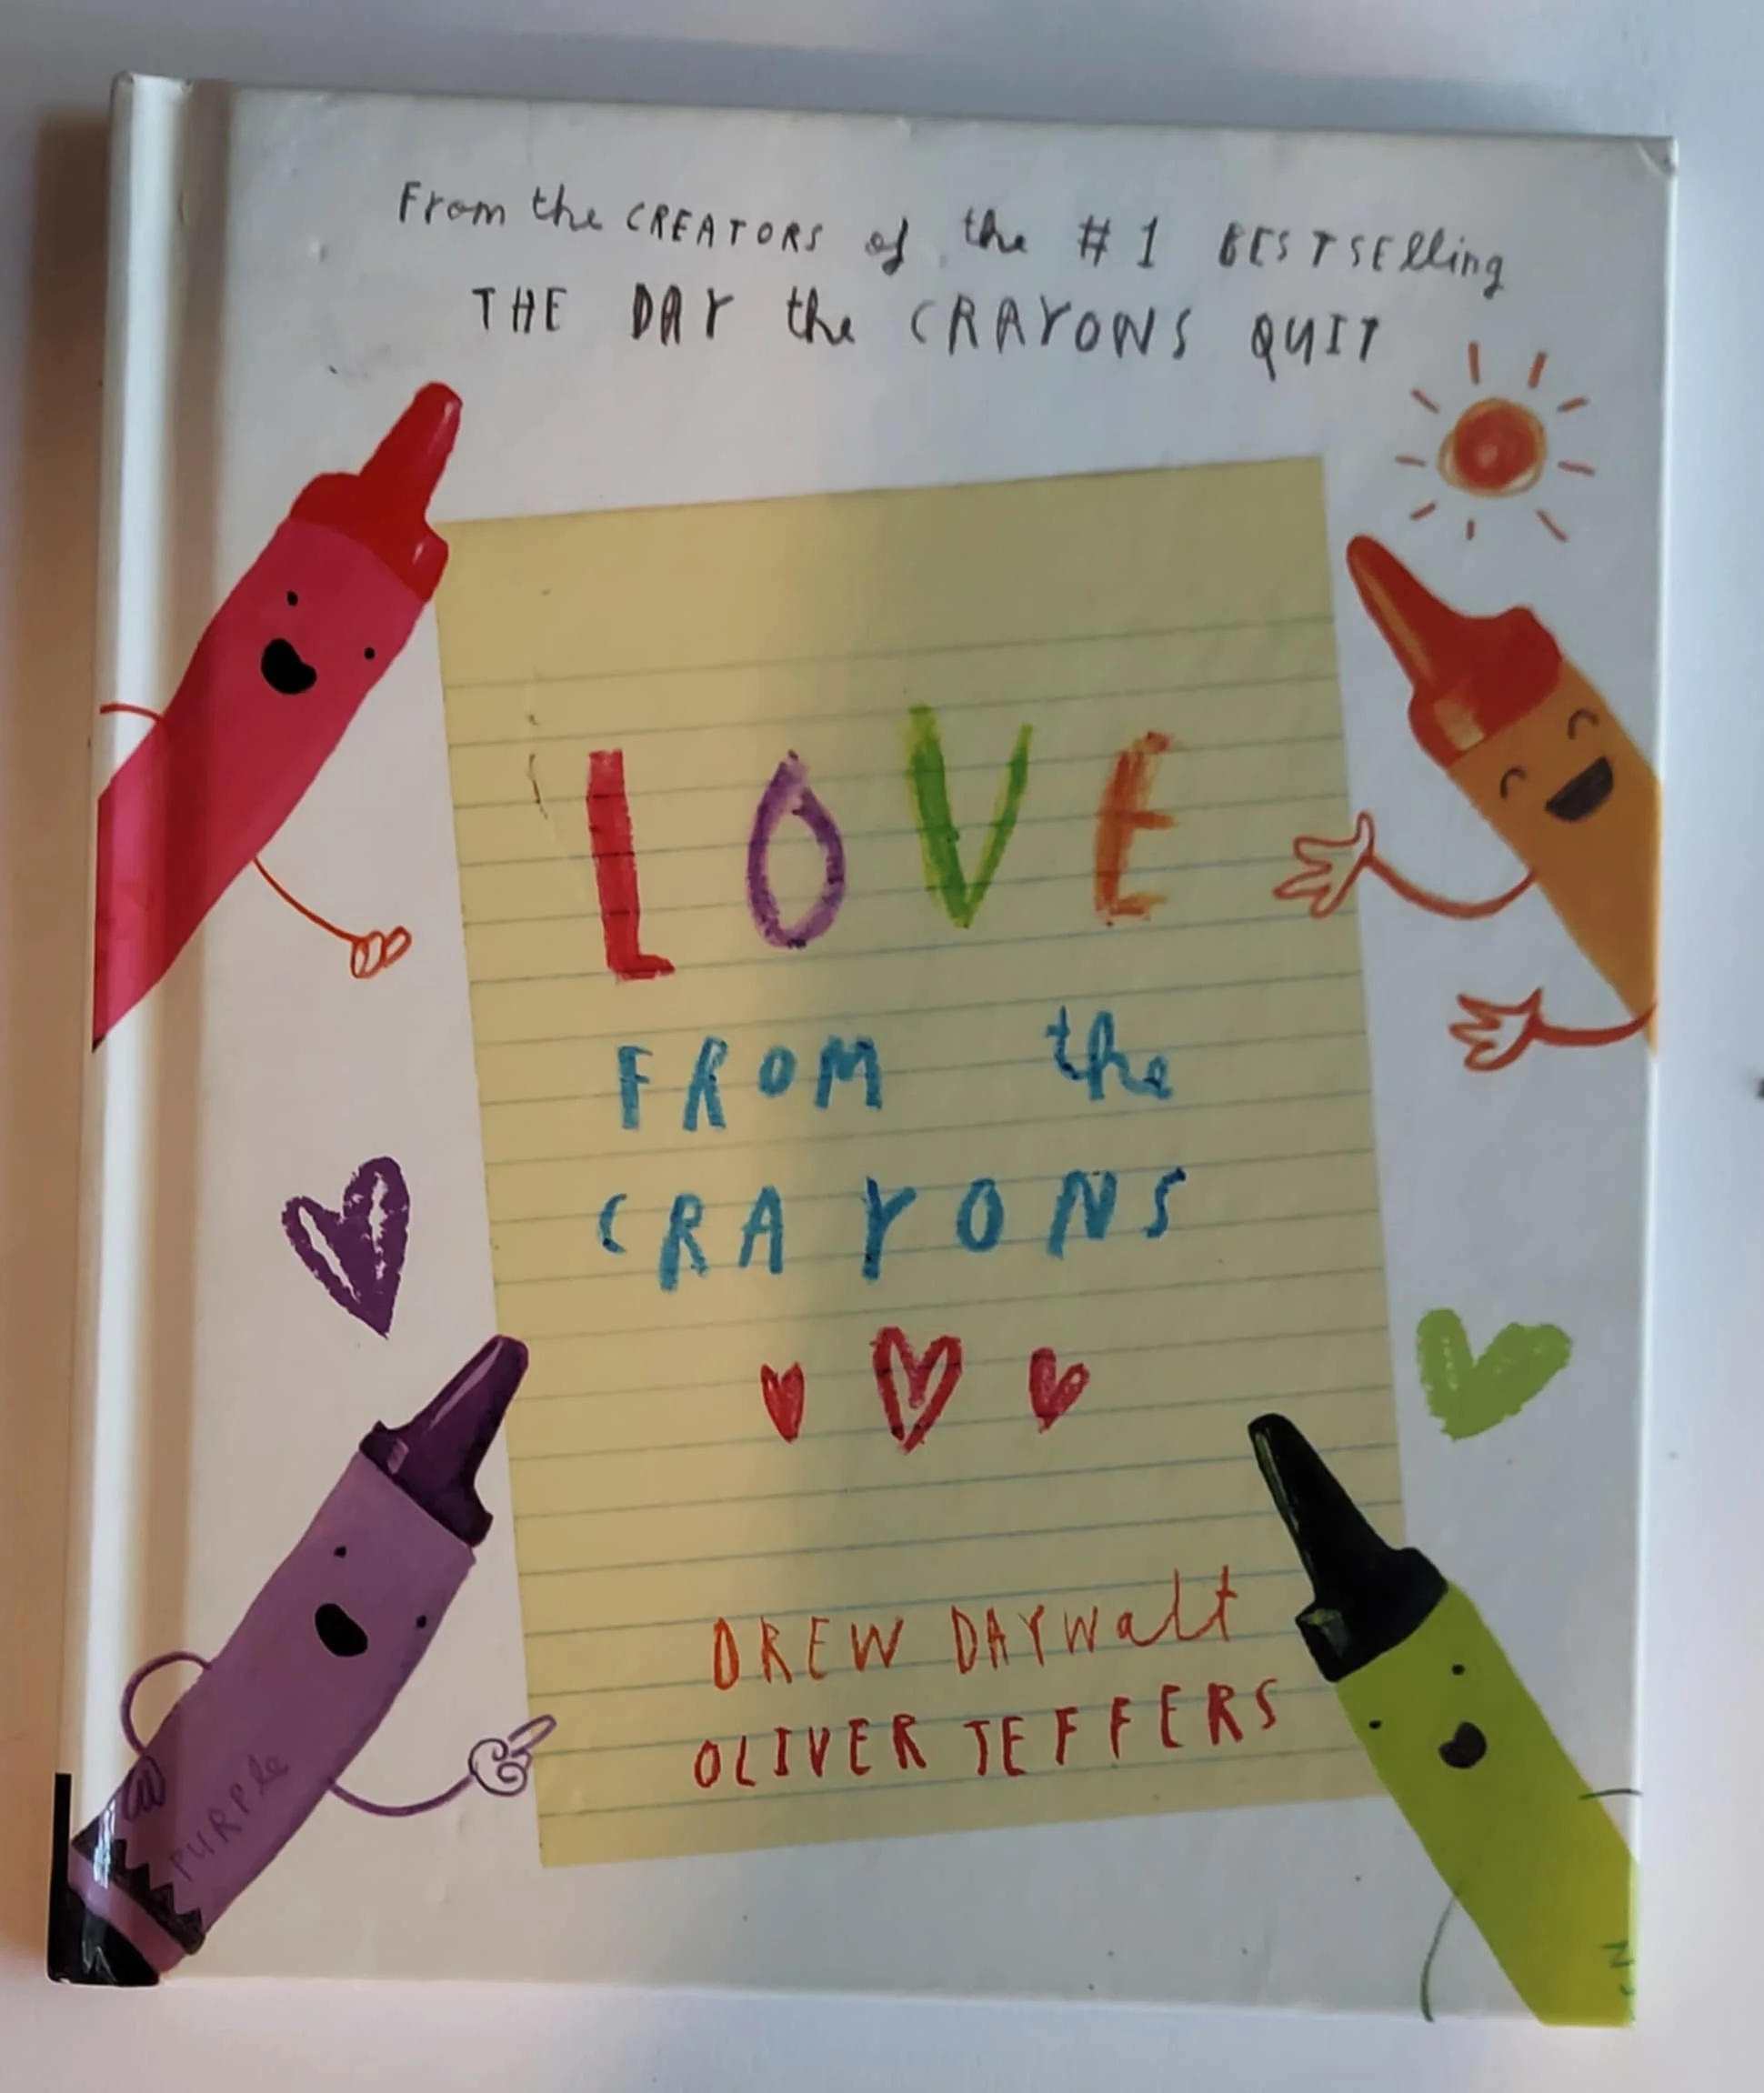 From the CREATORS of the #1 BESTSElling
THE DAY the CRAYONS QUIT
LOVE
FROM the
CRAYONS
DREW DAYWalt
OLIVER JEFFERS
PURPle